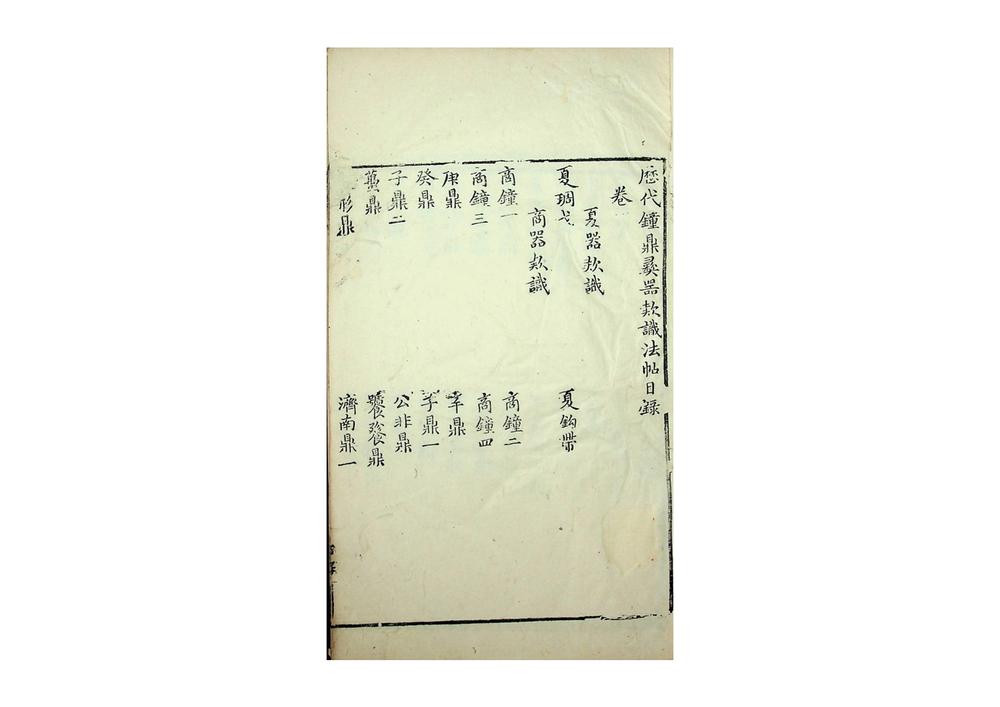 歷代鐘鼎彞器款識法帖目錄
卷一
夏器款識
夏琱戈 夏鈎帶
商器款識
商鐘一 商鐘二
商鐘三 商鐘四
庚鼎 辛鼎
癸鼎 子鼎一
子鼎二 公非鼎
蠆鼎 饕餮鼎
形鼎 濟南鼎一